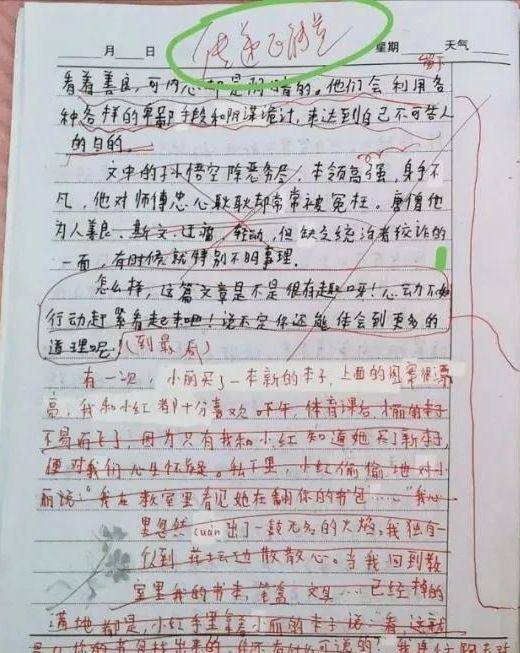 传递正能量
月 日 星期 天气
看着善良，可内心却是阴暗的。他们会利用各
种各样的卑鄙手段和阴谋诡计，来达到自己不可告人
的目的。
文中的孙悟空除恶务尽，本领高强，身手不
凡，他对师傅忠心耿耿却常常被冤枉。唐僧他
为人善良、斯文、过滥，轻动，但缺乏统治者狡诈的
一面，有时候就特别不明事理。
怎么样，这篇文章是不是很有趣呀！心动不如
行动赶紧看起来吧！说不定你还能体会到更多的
道理呢！（到最后）
有一次，小丽买了一本新的本子，上面的图案很漂
亮，我和小红都十分喜欢。下午，体育课后，小丽的本子
不易而飞了，因为只有我和小红知道她买了新本子，
便对我们心生怀疑。私下里，小红偷偷地对小
丽说：“我在教室里看见她在翻你的书包……”我心
里忽然cuàn出了一鼓无名的火焰，我独自
一人到花坛边散散心。当我回到教
室里我的书本，笔盒，文具……已经掉的
满地都是，小红手里拿着小丽的本子说：看这就
是从你的书包找出来的，你还有什么可说的？